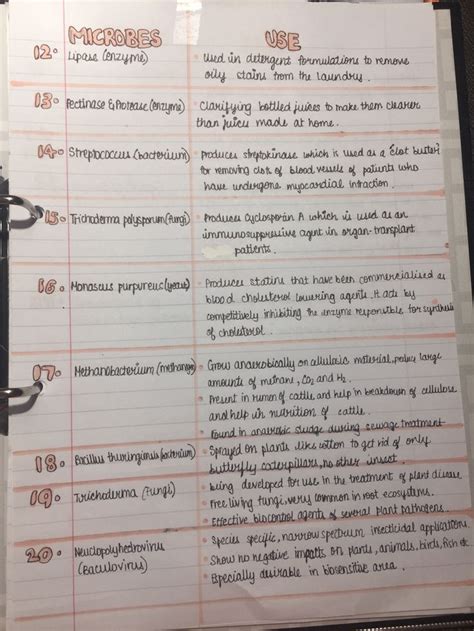 MICROBES USE
12. Lipase (enzyme)
• Used in detergent formulations to remove
oily stains from the laundry.
13. Pectinase & Protease (enzyme)
• Clarifying bottled juices to make them clearer
than juices made at home.
14. Streptococcus (bacterium)
• Produces streptokinase which is used as a 'clot buster'
for removing clots of blood vessels of patients who
have undergone myocardial infraction.
15. Trichoderma polysporum (fungi)
• Produces Cyclosporin A which is used as an
immunosuppressive agent in organ-transplant
patients.
16. Monascus purpureus (yeast)
• Produces statins that have been commercialised as
blood cholesterol lowering agents. It acts by
competitively inhibiting the enzyme responsible for synthesis
of cholesterol.
17. Methanobacterium (methanogen)
• Grow anaerobically on cellulosic material, produce large
amount of methane, CO2 and H2.
• Present in rumen of cattle and help in breakdown of cellulose
and help in nutrition of cattle.
• Found in anaerobic sludge during sewage treatment
18. Bacillus thuringiensis (bacterium)
• Sprayed on plants like cotton to get rid of only
butterfly caterpillars, no other insect.
19. Trichoderma (Fungi)
• Being developed for use in the treatment of plant disease
• Free living fungi, very common in root ecosystems.
• Effective biocontrol agents of several plant pathogens.
20. Nucleopolyhedrovirus
(Baculovirus)
• Species specific, narrow spectrum insecticidal applications
• Show no negative impacts on plants, animals, birds, fish etc
• Especially desirable in biosensitive area.